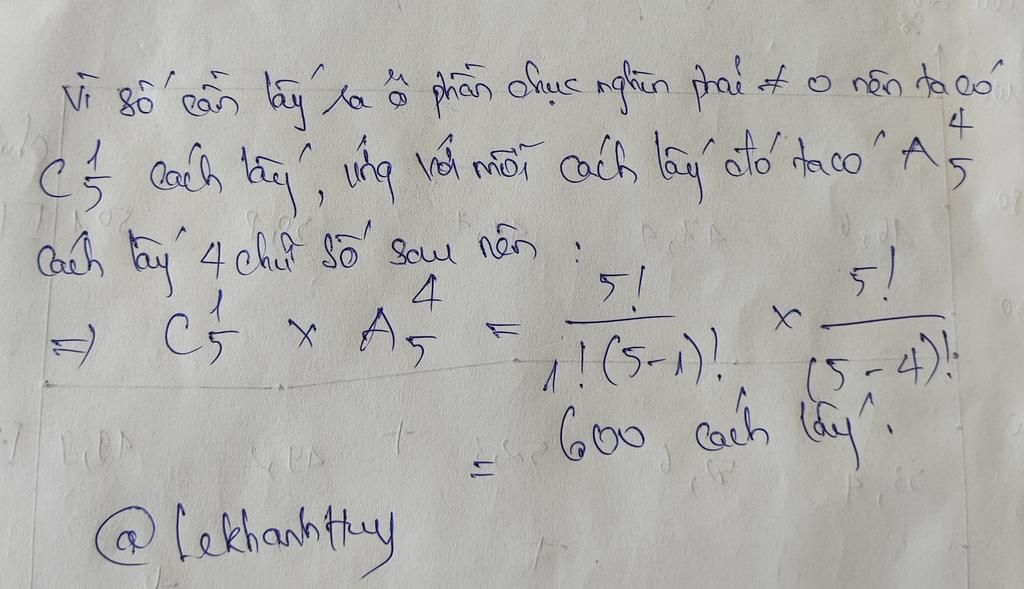 Vì số cần lấy ra ở phần chục nghìn phải ≠ 0 nên ta có
C¹₅ cách lấy, ứng với mỗi cách lấy đó ta có A⁴₅
cách lấy 4 chữ số sau nên :
=> C¹₅ x A⁴₅ = 5!/1!(5-1)! x 5!/(5-4)!
= 600 cách lấy.
@lekhanhHuy